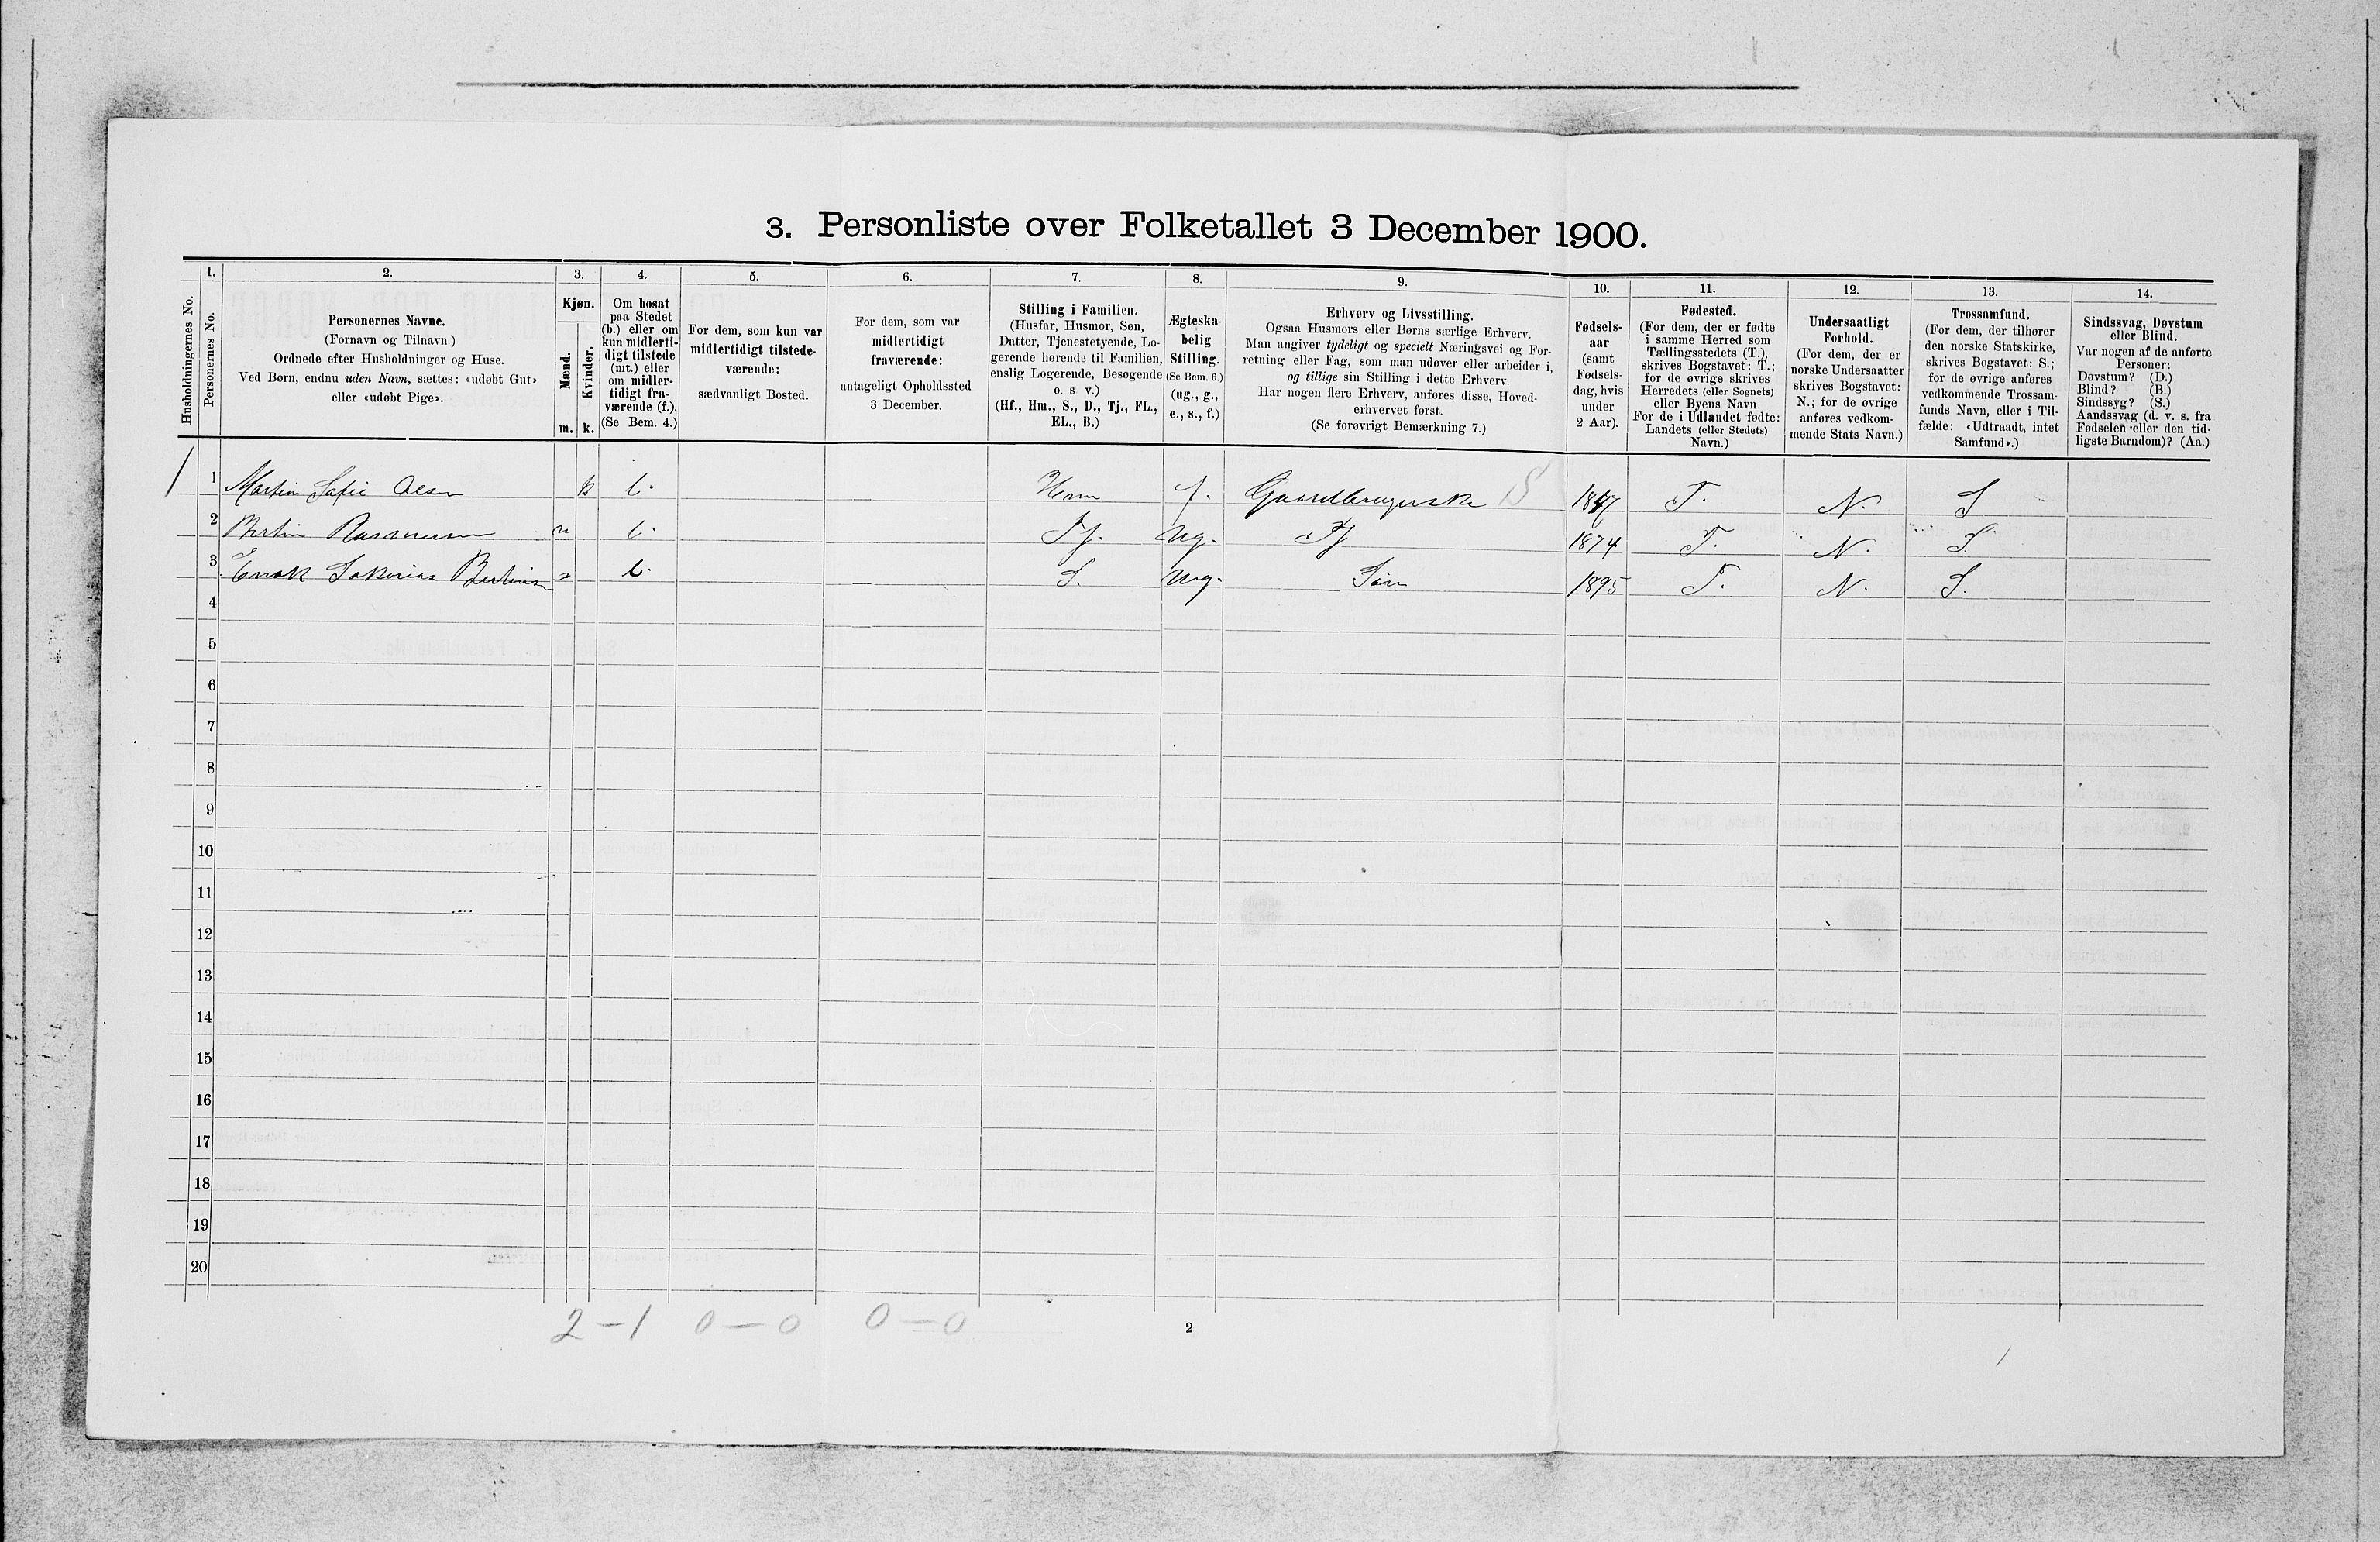 3. Personliste over Folketallet 3 December 1900.
Husholdningernes No.
1.
Personernes No.
2.
Personernes Navne.
(Fornavn og Tilnavn)
Ordnede efter Husholdninger og Huse.
Ved Børn, endnu uden Navn, sættes: «udøbt Gut»
eller «udøbt Pige».
3.
Kjøn.
Mænd.
Kvinder.
m. k.
4.
Om bosat
paa Stedet
(b.) eller om
kun midlerti-
digt tilstede
(mt.) eller
om midler-
tidigt fra-
værende (f.).
(Se Bem. 4.)
5.
For dem, som kun var
midlertidigt tilstede-
værende:
sædvanligt Bosted.
6.
For dem, som var
midlertidigt
fraværende:
antageligt Opholdssted
3 December.
7.
Stilling i Familien.
(Husfar, Husmor, Søn,
Datter, Tjenestetyende, Lo-
gerende hørende til Familien,
enslig Logerende, Besøgende
o. s v.)
(Hf., Hm., S., D., Tj., FL.,
EL., B.)
8.
Ægteska-
belig
Stilling.
(Se Bem. 6.)
(ug., g.,
e., s., f.)
9.
Erhverv og Livsstilling.
Ogsaa Husmors eller Børns særlige Erhverv.
Man angiver tydeligt og specielt Næringsvei og For-
retning eller Fag, som man udøver eller arbeider i,
og tillige sin Stilling i dette Erhverv.
Har nogen flere Erhverv, anføres disse, Hoved-
erhvervet først.
(Se forøvrigt Bemærkning 7.)
10.
Fødsels-
aar
(samt
Fødsels-
dag, hvis
under
2 Aar).
11.
Fødested.
(For dem, der er fødte
i samme Herred som
Tællingsstedets (T.),
skrives Bogstavet: T.;
for de øvrige skrives
Herredets (eller Sognets)
eller Byens Navn.
For de i Udlandet fødte:
Landets (eller Stedets)
Navn.)
12.
Undersaatligt
Forhold.
(For dem, der er
norske Undersaatter
skrives Bogstavet:
N.; for de øvrige
anføres vedkom-
mende Stats Navn.)
13.
Trossamfund.
(For dem, der tilhører
den norske Statskirke,
skrives Bogstavet: S.;
for de øvrige anføres
vedkommende Trossam-
funds Navn, eller i Til-
fælde: «Udtraadt, intet
Samfund».)
14.
Sindssvag, Døvstum
eller Blind.
Var nogen af de anførte
Personer:
Døvstum? (D.)
Blind? (B.)
Sindssyg? (S.)
Aandssvag (d. v. s. fra
Fødselen eller den tid-
ligste Barndom)? (Aa.)
1 Olsen k b. Hm f. Gaardbrugerske T. N. S
2 Rasmussen m b. Tj. ug. Tj 1874 T. N. S.
3 b. S. ug. Søn 1895 T. N. S.
4
5
6
7
8
9
10
11
12
13
14
15
16
17
18
19
20
2 – 1 0 – 0 0 – 0
2